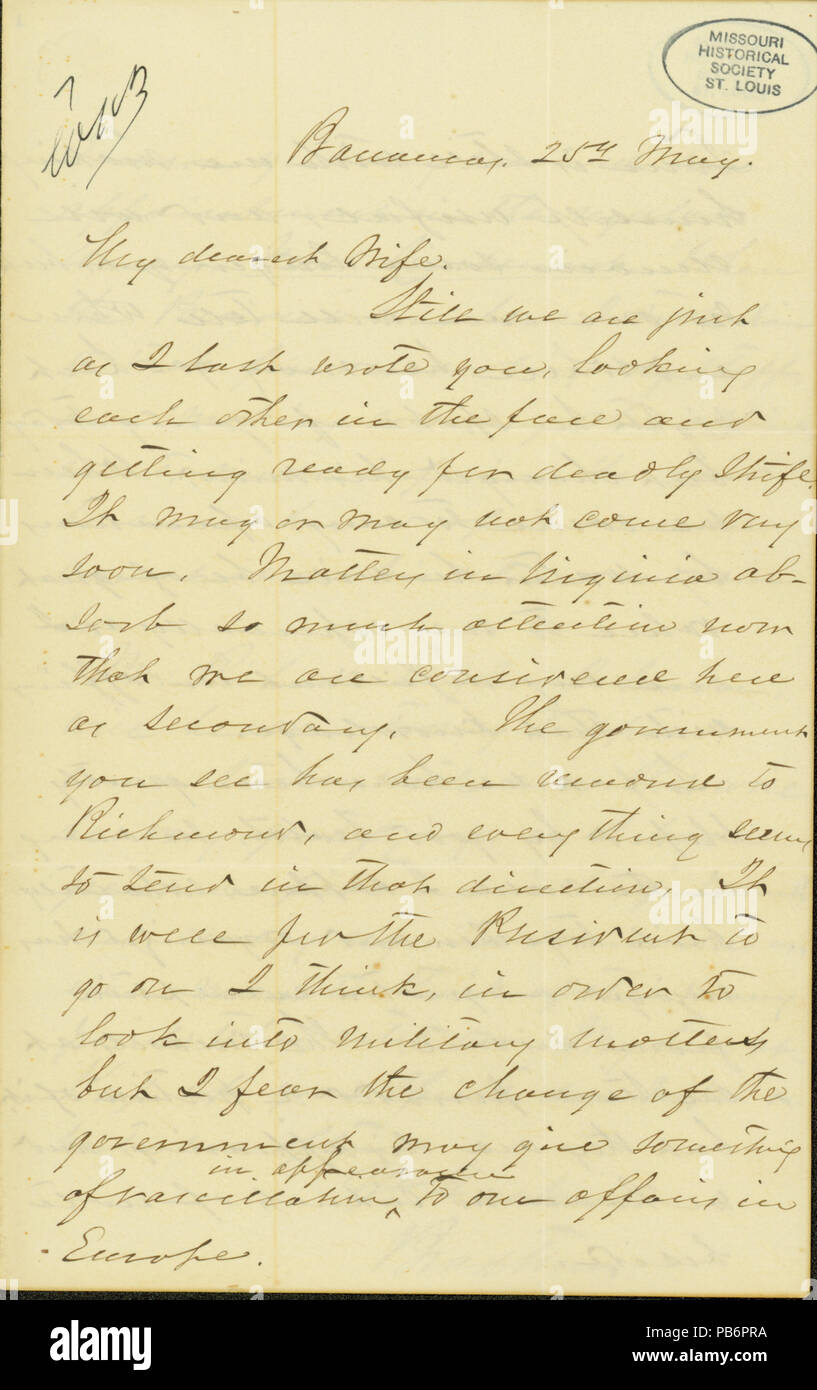 MISSOURI
HISTORICAL
SOCIETY
ST. LOUIS
25th May.
My dearest Wife.
Still we are just
as I last wrote you, looking
each other in the face and
getting ready for deadly strife.
It may or may not come very
soon. Matters in Virginia ab-
sorb so much attention now
that we are considered here
as secondary. The government
you see has been removed to
Richmond, and everything seems
to tend in that direction. It
is well for the President to
go on I think, in order to
look into military matters
but I fear the change of the
government may give something
in appearance
of vascillation ^ to our affairs in
Europe.
alamy
Image ID: PB6PRA
www.alamy.com